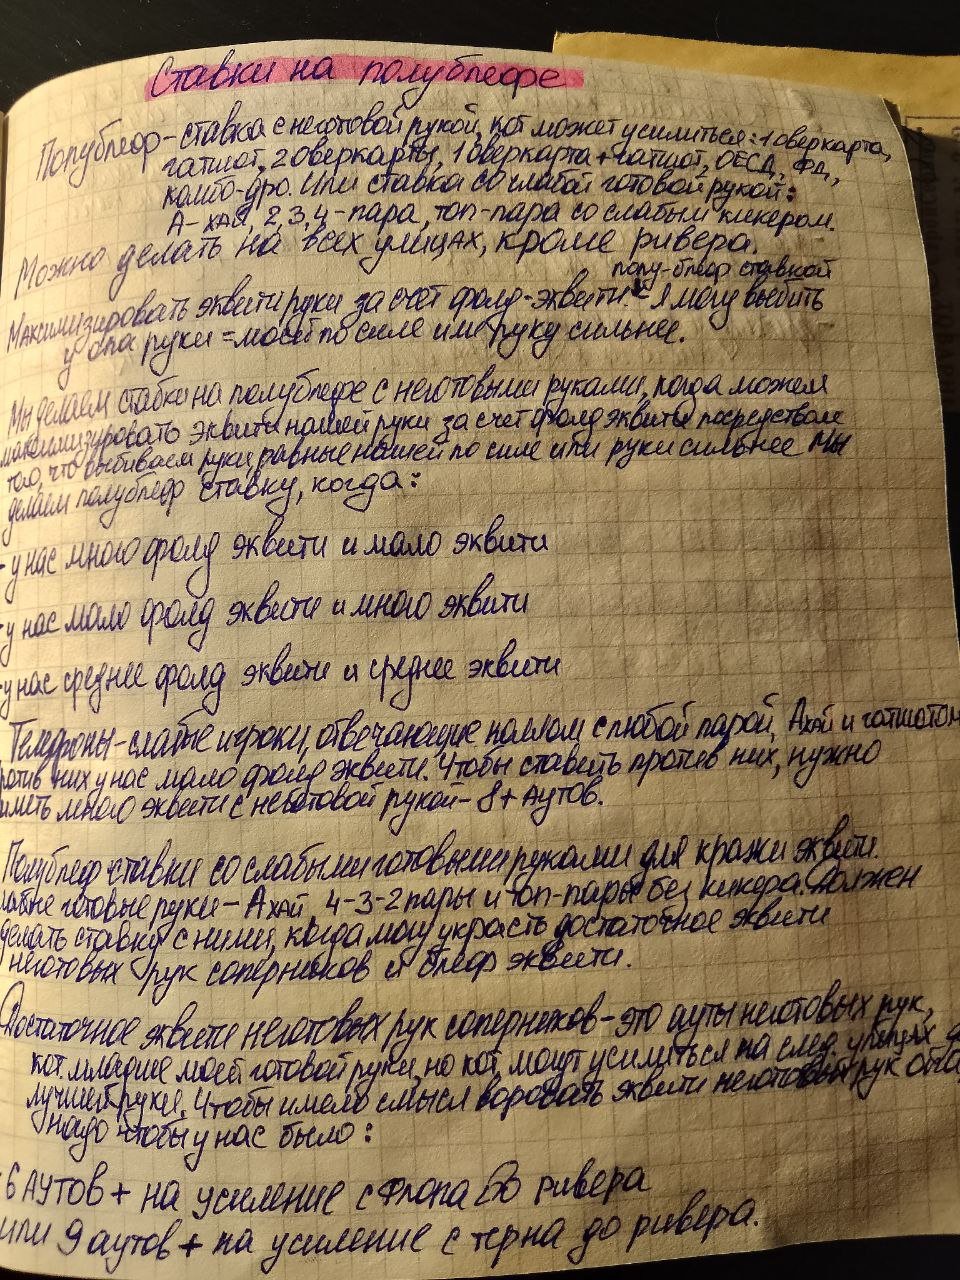 Ставки на полублефе
Полублеф - ставка с неготовой рукой, кот. может усилиться: 1 оверкарта,
гатшот, 2 оверкарты, 1 оверкарта + гатшот, ОЕСД, ФД,
комбо-дро. Или ставка со слабой готовой рукой:
А-хай, 2, 3, 4 - пара, топ-пара со слабым кикером.
Можно делать на всех улицах, кроме ривера.
полу-блеф ставкой
Максимизировать эквити руки за счет фолд-эквити. Я могу выбить
у опа руки = моей по силе или руку сильнее.
Мы делаем ставки на полублефе с неготовыми руками, когда можем
максимизировать эквити нашей руки за счет фолд эквити посредством
того, что выбиваем руки равные нашей по силе или руки сильнее Мы
делаем полублеф ставку, когда:
- у нас много фолд эквити и мало эквити
- у нас мало фолд эквити и много эквити
- у нас среднее фолд эквити и среднее эквити
Телефоны - слабые игроки, отвечающие коллом с любой парой, Ахай и гатшотом
против них у нас мало фолд эквити. Чтобы ставить против них, нужно
иметь много эквити с неготовой рукой - 8+ аутов.
Полублеф ставки со слабыми готовыми руками для кражи эквити.
слабые готовые руки - Ахай 4-3-2 пары и топ-пары без кикера. Должен
делать ставку с ними, когда могу украсть достаточное эквити
неготовых рук соперников и блеф эквити.
Достаточное эквити неготовых рук соперников - это ауты неготовых рук,
кот. младше моей готовой руки, но кот. могут усилиться на след. улицах до
лучшей руки. Чтобы имело смысл воровать эквити неготовых рук опа,
надо чтобы у нас было:
- 6 аутов + на усиление с флопа до ривера
или 9 аутов + на усиление с терна до ривера.